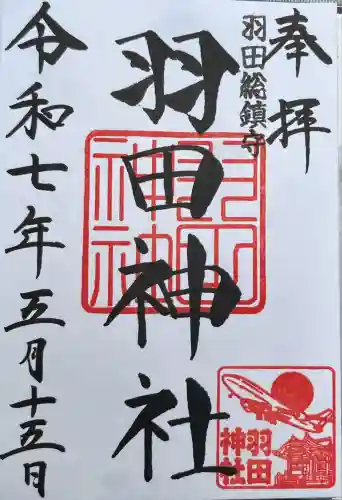 奉拝
羽田総鎮守
羽田神社
羽田神社
令和七年五月十五日
羽田
神社